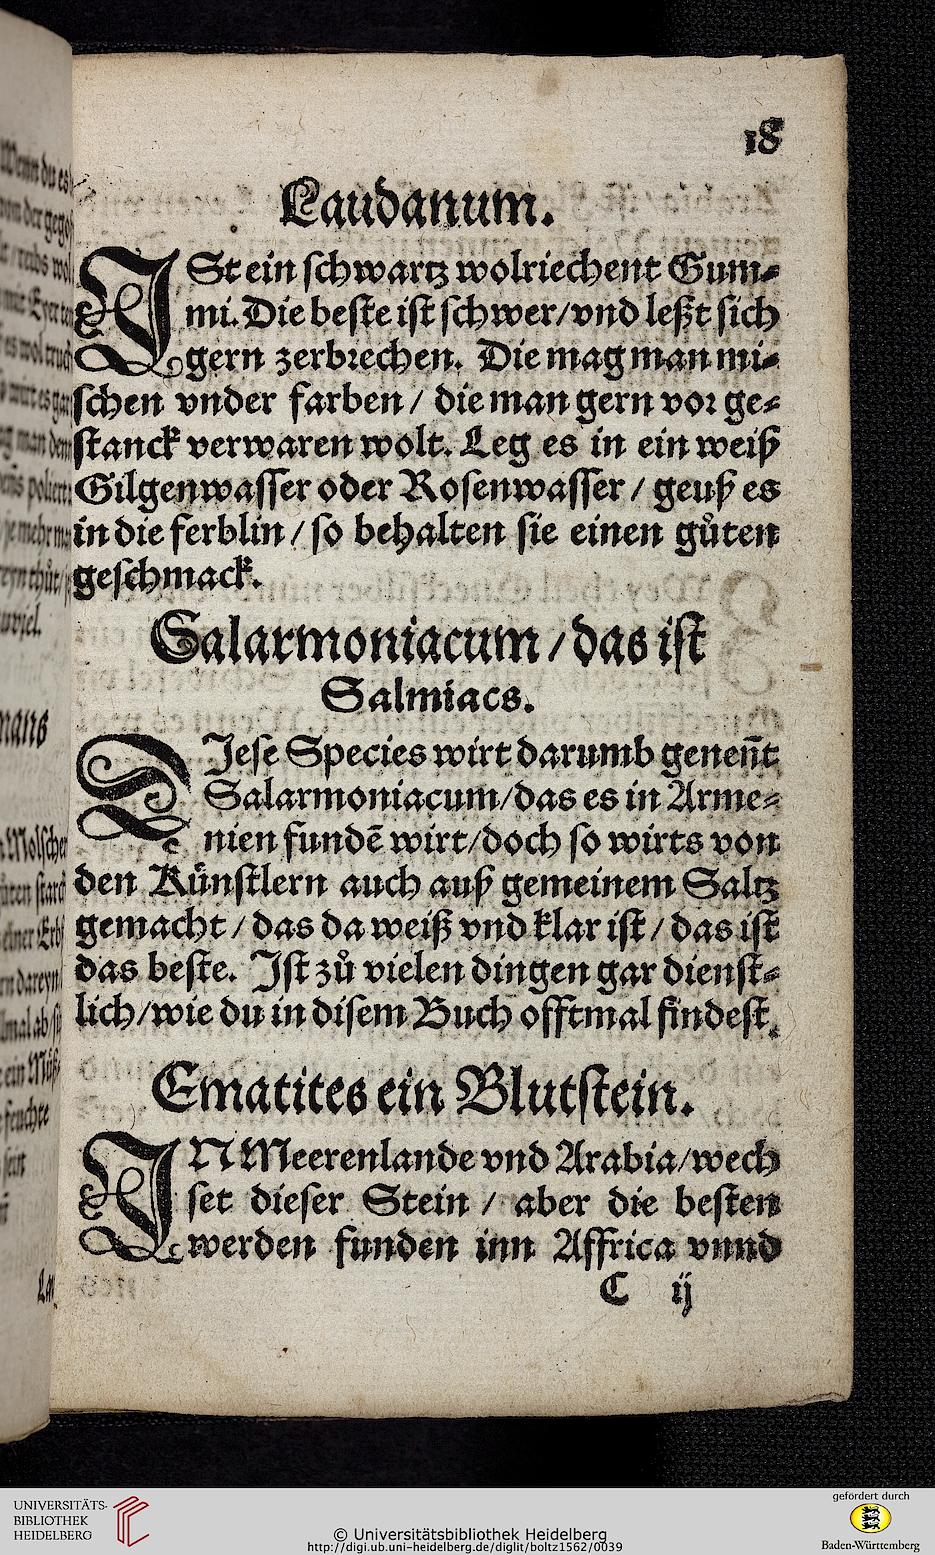 18
Laudanum.
ISt ein schwartz wolriechent Gum⸗
mi. Die beste ist schwer/vnd leßt sich
gern zerbrechen. Die mag man mi⸗
schen vnder farben / die man gern vor ge⸗
stanck verwaren wolt. Leg es in ein weiß
Gilgenwasser oder Rosenwasser / geuß es
in die ferblin / so behalten sie einen gůten
geschmack.
Salarmoniacum / das ist
Salmiacs.
DIese Species wirt darumb geneñt
Salarmoniacum/das es in Arme⸗
nien fundẽ wirt/doch so wirts von
den Künstlern auch auß gemeinem Saltz
gemacht / das da weiß vnd klar ist / das ist
das beste. Ist zů vielen dingen gar dienst⸗
lich/wie du in disem Buch offtmal findest.
Ematites ein Blutstein.
IN Meerenlande vnd Arabia/wech
set dieser Stein / aber die besten
werden funden inn Affrica vnnd
C ij
UNIVERSITÄTS-
BIBLIOTHEK
HEIDELBERG
© Universitätsbibliothek Heidelberg
http://digi.ub.uni-heidelberg.de/diglit/boltz1562/0039
gefördert durch
Baden-Württemberg